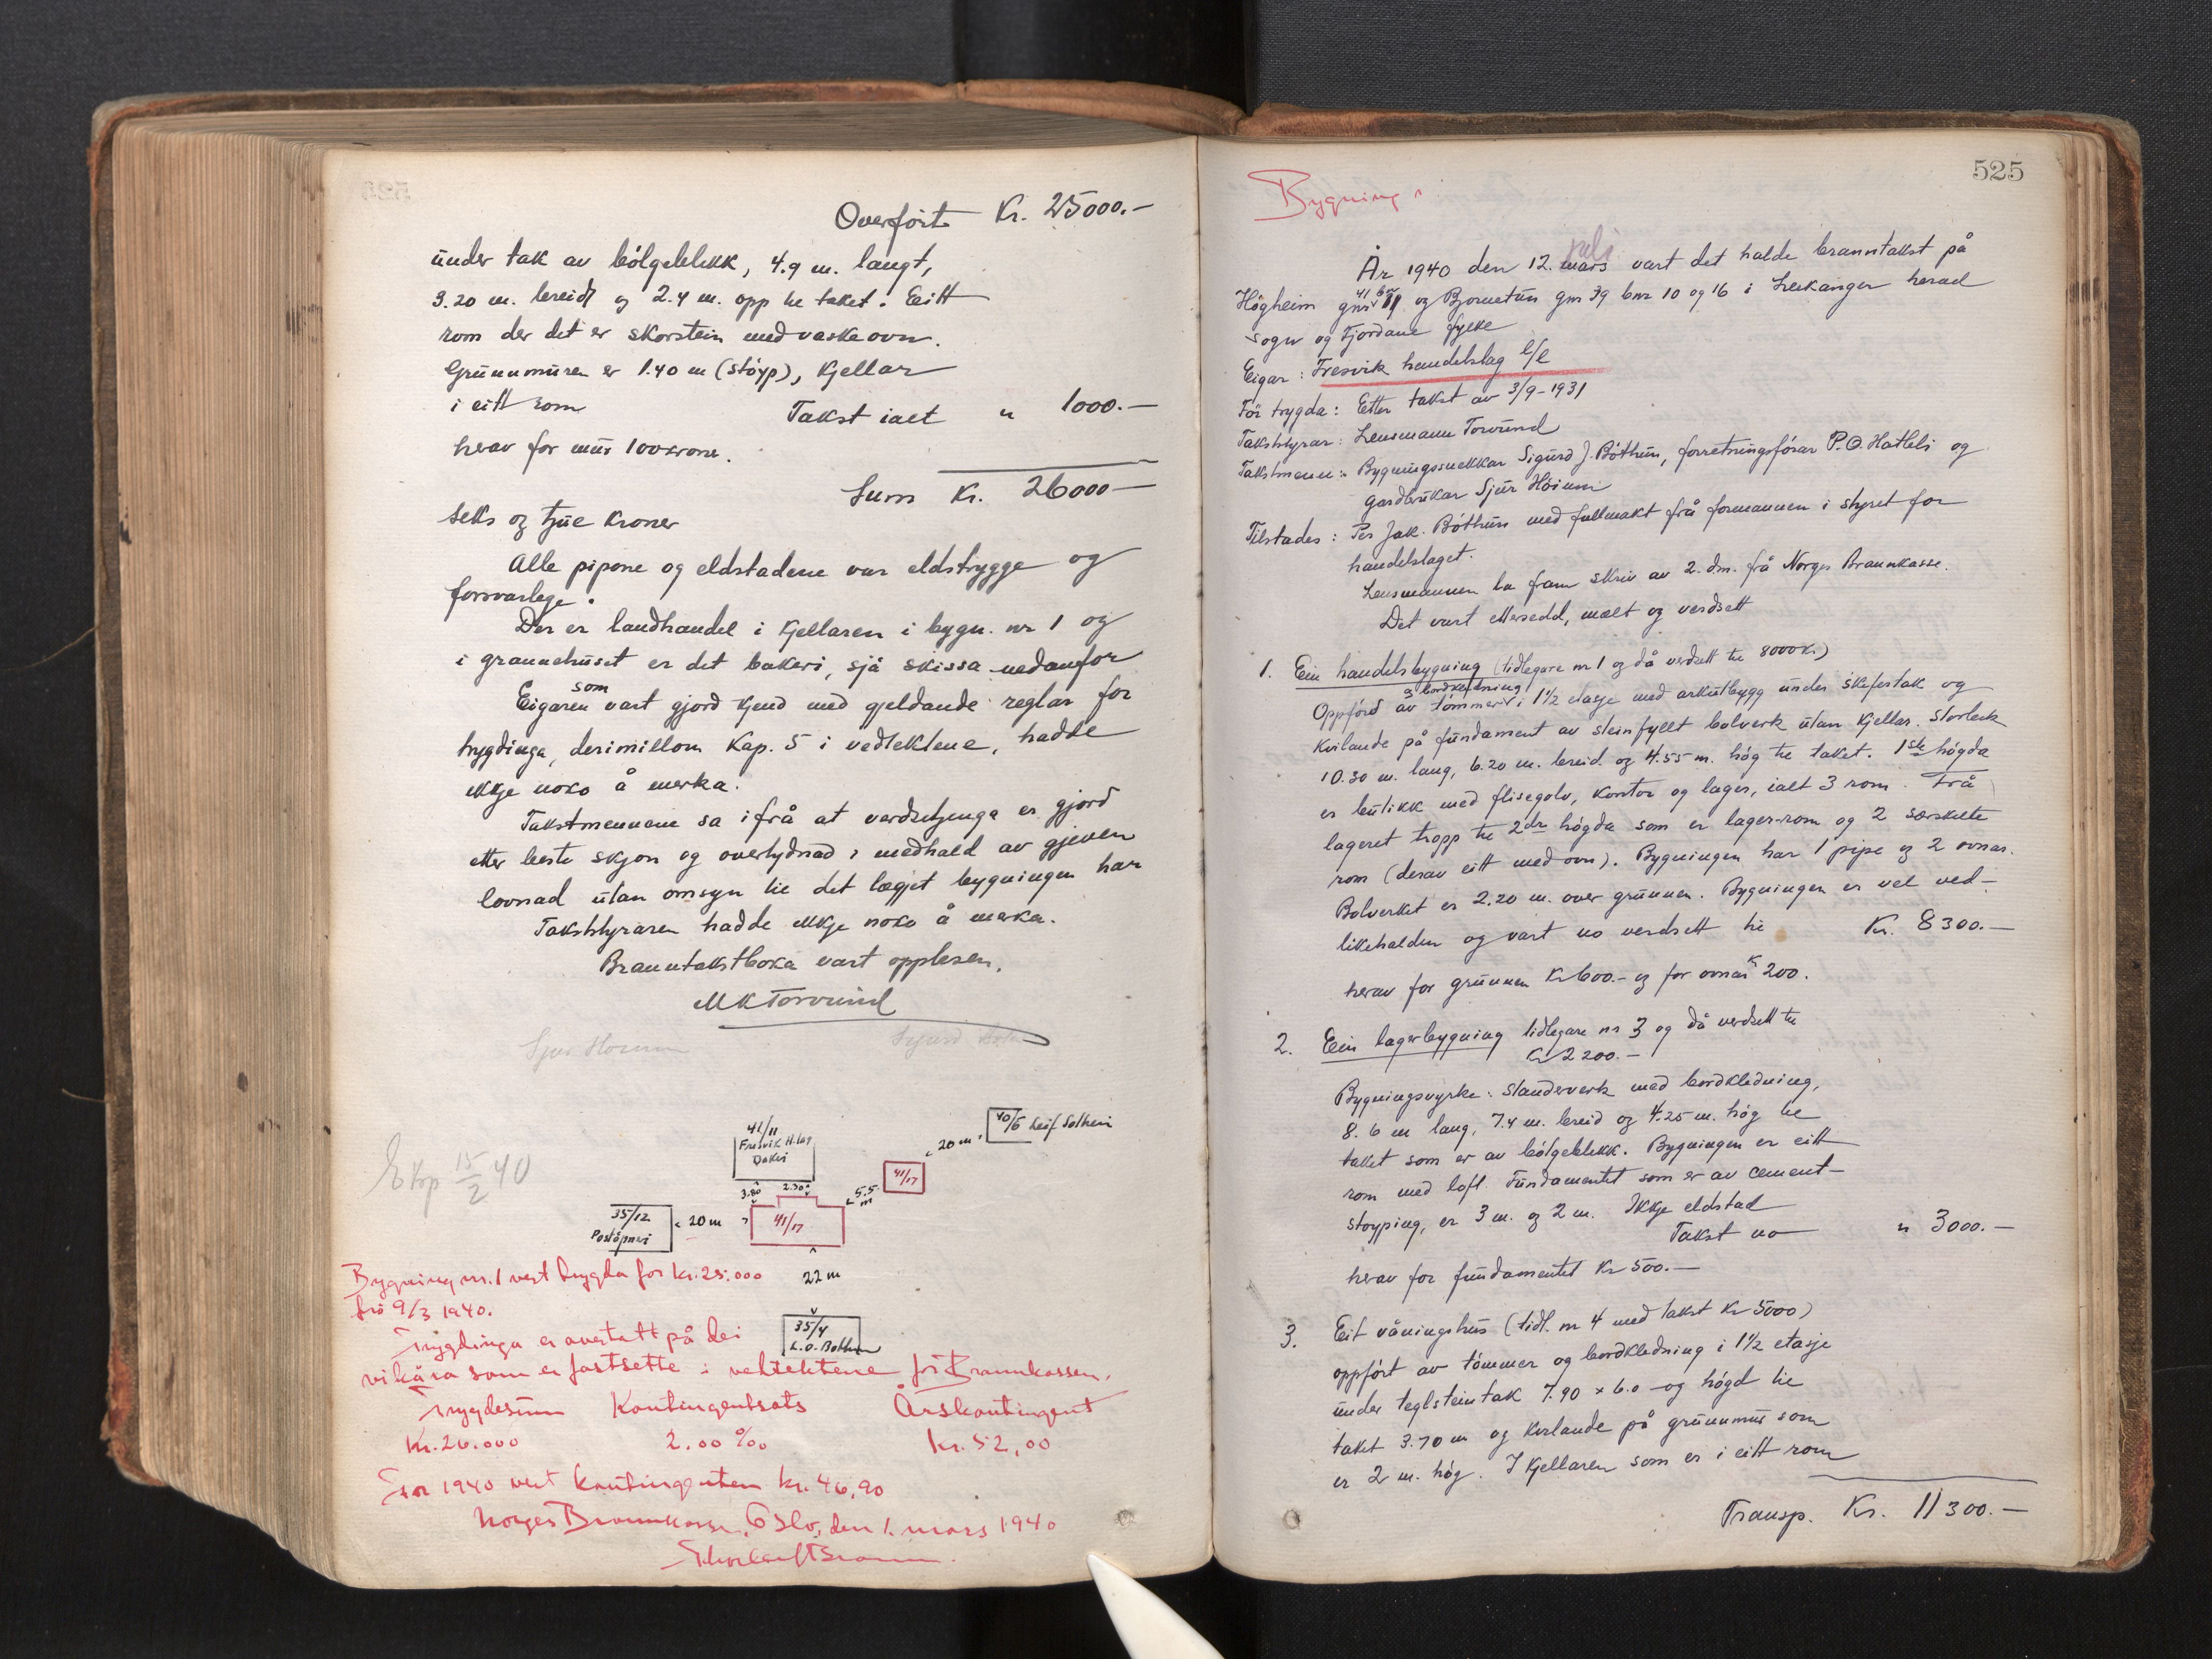 Overført Kr. 25000.-
under tak av bølgeblekk, 4.9 m. langt,
3.20 m. breidt og 2.4 m. opp te taket. Eitt
rom der det er skorstein med vaskeovn.
Grunnmuren er 1.40 m (støyp), kjellar
i eitt rom Takst ialt " 1000.-
herav for mur 100 krone.
Sum Kr. 26000-
seks og tjue kroner
Alle pipone og eldstadene var eldstrygge og
forsvarlege.
Der er landhandel i kjellaren i bygn. nr 1 og
i grannehuset er det bakeri, sjå skissa nedanfor
Eigaren som vart gjord kjend med gjeldande reglar for
trygdinga, derimillom Kap. 5 i vedtektene, hadde
ikkje noko å merka.
Takstmennene sa ifrå at verdsetjinga er gjord
etter beste skjøn og overtydnad i medhald av gjeven
lovnad utan omsyn til det lægjet bygningen har
Takststyraren hadde ikkje noko å merka.
Branntakstboka vart opplesen.
M K Torvund
Sjur Hoium Sigurd
40/6 Leif Solheim
41/11
Fresvik H.lag
Bakeri
20 m
41/17
3.80 2.30 5.5 m
35/12
Postopneri
20 m
41/17
Eksp 15/2 40
22 m
Bygning nr. 1 vert trygda for kr. 25.000
frå 9/3 1940.
35/4
L.O. Bothun
Trygdinga er overtatt på dei
vilkåra som er fastsette i vedtektene for Brannkassen.
Trygdesum Kontingentsats Årskontingent
Kr. 26.000 2.00 ‰ kr. 52,00
For 1940 vert kontingenten kr. 46,90
Norges Brannkasse, Oslo, den 1. mars 1940
525
Bygning
juli
År 1940 den 12. mars vart det halde branntakst på
Högheim gnr 41 bnr og Bjørnetun gnr 39 bnr 10 og 16 i Leikanger herad
Sogn og Fjordane fylke
Eigar: Fresvik handelslag l/l
För trygda: Etter takst av 3/9-1931
Takststyrar: Lensmann Torvund
Takstmenn: Bygningssnekkar Sigurd J. Böthun, forretningsförar P.O. Hatleli og
gardbrukar Sjur Höium
Tilstades: Per Jak. Böthun med fullmakt frå formannen i styret for
handelslaget.
Lensmannen la fram skriv av 2. dm. frå Norges Brannkasse.
Det vart ettersedd, mælt og verdsett
1. Ein handelsbygning (tidlegare nr 1 og då verdsett te 8000 k.)
Oppförd av tömmer og bordkledning i 1½ etasje med arkutbygg under skifertak og
kvilande på fundament av steinfyllt bolverk utan kjellar. Storleik
10.30 m. lang, 6.20 m. breid og 4.55 m. høg te taket. 1ste högda
er butikk med flisegolv, kontor og lager, ialt 3 rom. Frå
lageret tropp te 2dre högda som er lager-rom og 2 særskilte
rom (derav eitt med ovn). Bygningen har 1 pipe og 2 ovnar.
Bolverket er 2.20 m. over grunnen. Bygningen er vel ved-
likehalden og vart no verdsett te Kr. 8300.-
herav for grunnen Kr 600.- og for ovnar k 200.
2. Ein lagerbygning tidlegare nr 3 og då verdsett te
Kr 2200.-
Bygningsvyrke: Standerverk med bordkledning,
8.6 m lang, 7.4 m. breid og 4.25 m. høg te
taket som er av bølgeblekk. Bygningen er eitt
rom med loft. Fundamentet som er av cement-
støyping, er 3 m. og 2 m. Ikkje eldstad
Takst no " 3000.-
herav for fundamentet Kr 500.-
3. Eit våningshus (tidl. nr 4 med takst Kr 5000)
oppfört av tömmer og bordkledning i 1½ etasje
under teglsteintak 7.90 x 6.0 og högd te
taket 3.70 m og kvilande på grunnmur som
er 2 m. høg. I kjellaren som er i eitt rom
Transp. Kr. 11300.-